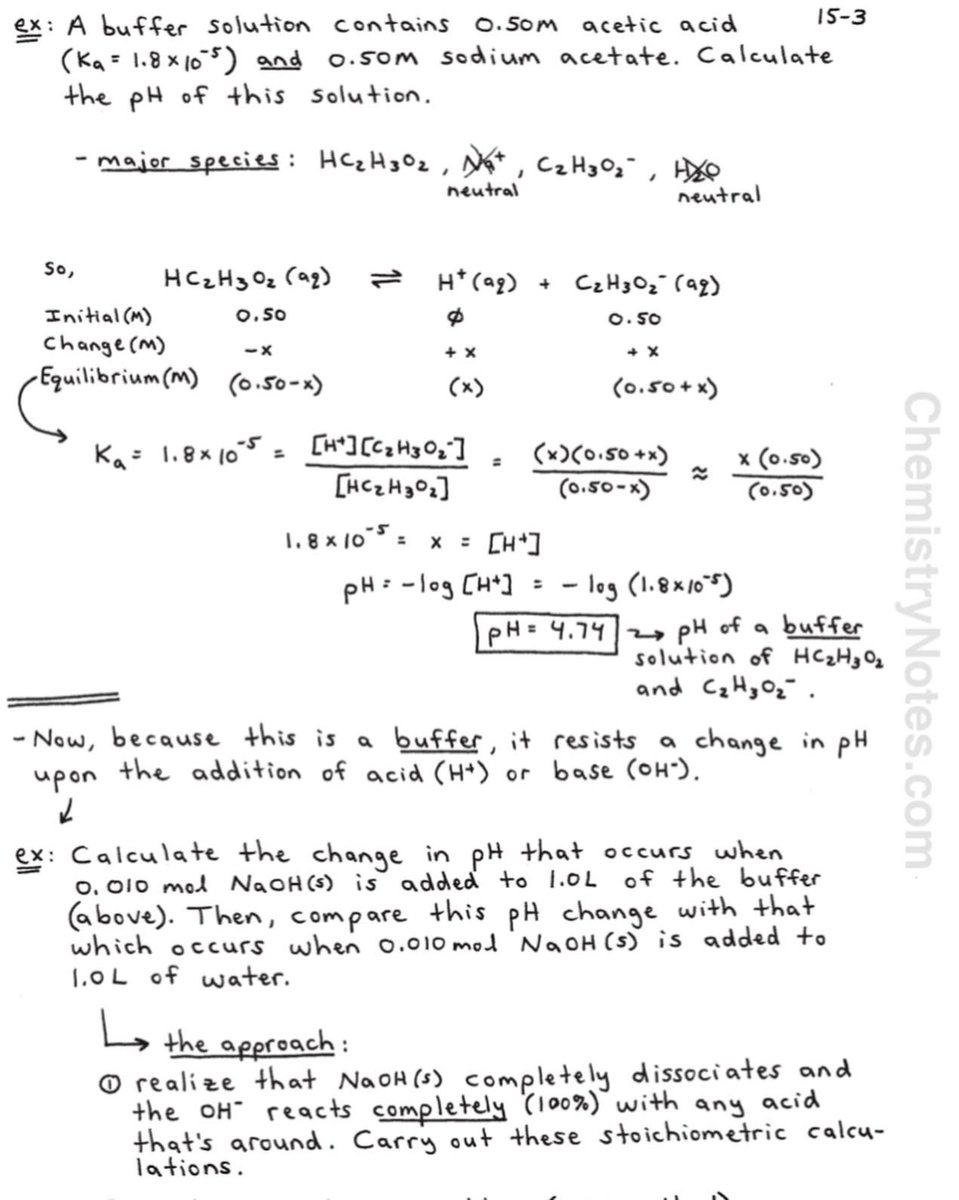 15-3
ex: A buffer solution contains 0.50M acetic acid
(Ka = 1.8×10⁻⁵) and 0.50M sodium acetate. Calculate
the pH of this solution.
- major species: HC₂H₃O₂, Na⁺, C₂H₃O₂⁻, H₂O
neutral neutral
So, HC₂H₃O₂ (aq) ⇌ H⁺(aq) + C₂H₃O₂⁻(aq)
Initial(M) 0.50 ϕ 0.50
Change(M) -x +x +x
Equilibrium(M) (0.50-x) (x) (0.50+x)
Ka = 1.8×10⁻⁵ = [H⁺][C₂H₃O₂⁻] / [HC₂H₃O₂] = (x)(0.50+x) / (0.50-x) ≈ x(0.50) / (0.50)
1.8×10⁻⁵ = x = [H⁺]
pH = -log [H⁺] = - log (1.8×10⁻⁵)
pH = 4.74 → pH of a buffer
solution of HC₂H₃O₂
and C₂H₃O₂⁻.
- Now, because this is a buffer, it resists a change in pH
upon the addition of acid (H⁺) or base (OH⁻).
ex: Calculate the change in pH that occurs when
0.010 mol NaOH(s) is added to 1.0L of the buffer
(above). Then, compare this pH change with that
which occurs when 0.010 mol NaOH(s) is added to
1.0L of water.
the approach:
① realize that NaOH(s) completely dissociates and
the OH⁻ reacts completely (100%) with any acid
that's around. Carry out these stoichiometric calcu-
lations.
ChemistryNotes.com